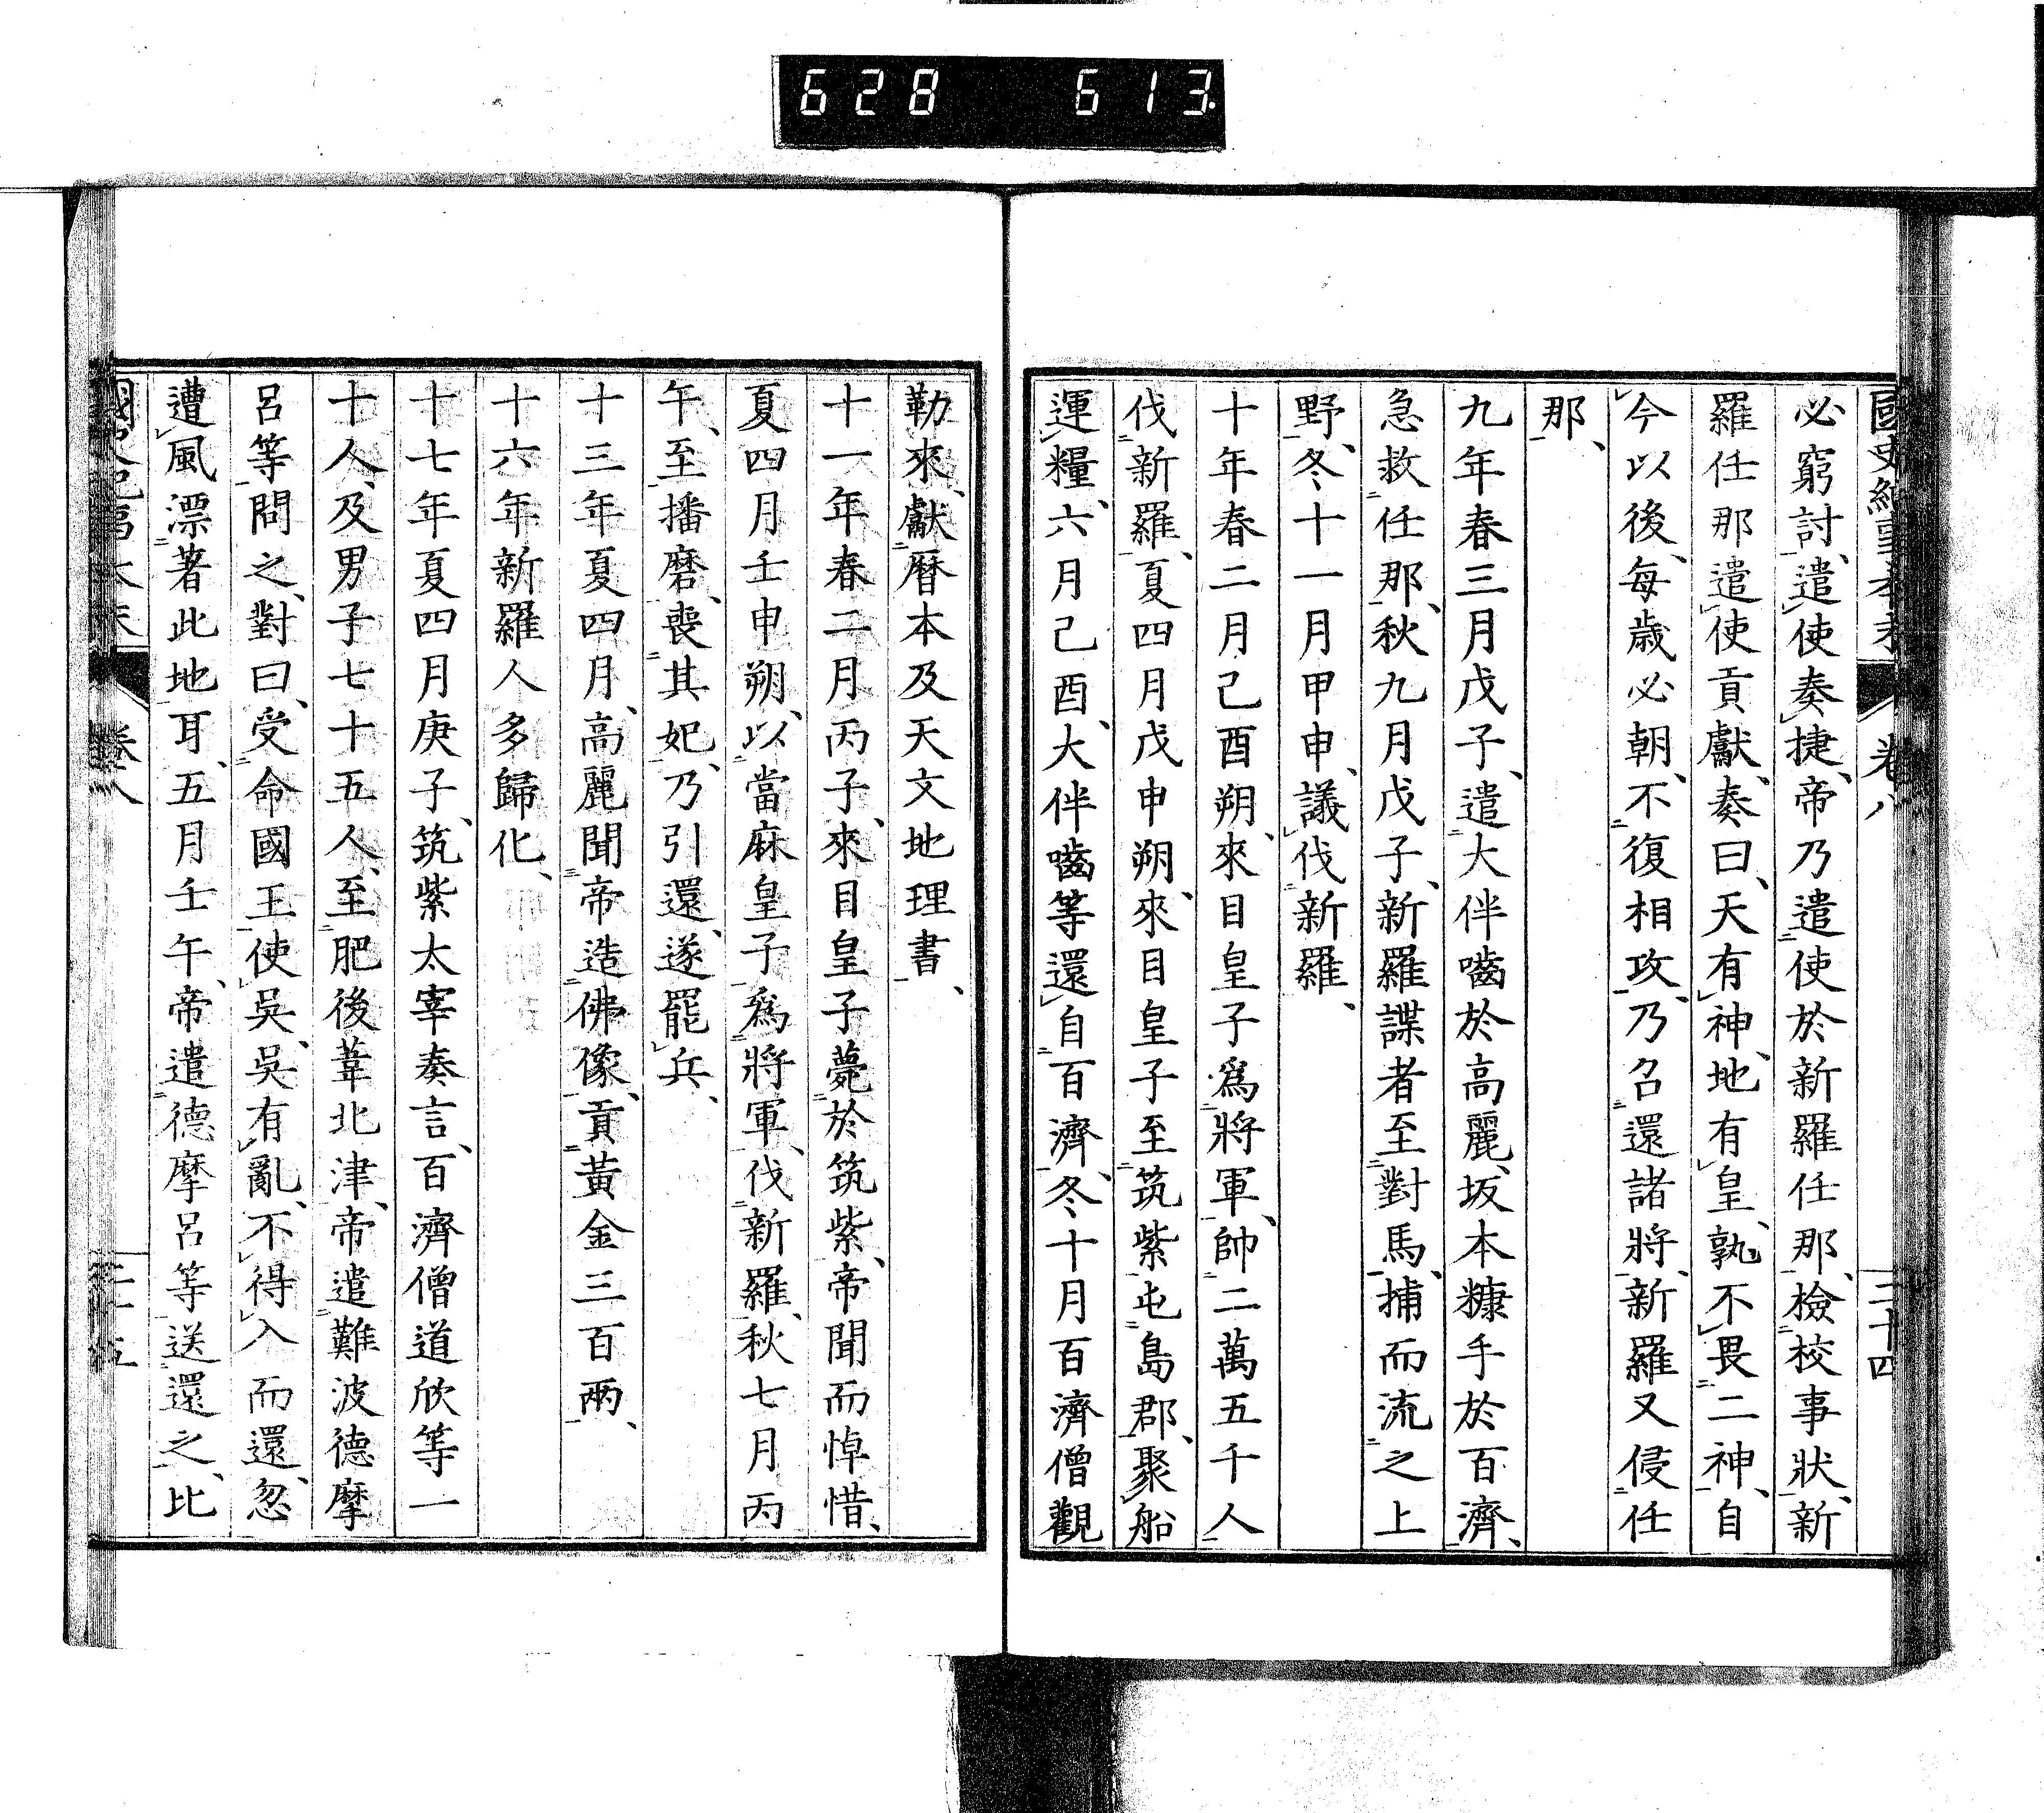 628 613
國史紀事本末 卷八 二十四
必窮討、遣使奏捷、帝乃遣使於新羅任那、檢校事狀、新
羅任那遣使貢獻、奏曰、天有神、地有皇、孰不畏二神、自
今以後、每歲必朝、不復相攻、乃召還諸將、新羅又侵任
那、
九年春三月戊子、遣大伴嚙於高麗、坂本糠手於百濟、
急救任那、秋九月戊子、新羅諜者至對馬、捕而流之上
野、冬十一月甲申、議伐新羅、
十年春二月己酉朔、來目皇子爲將軍、帥二萬五千人
伐新羅、夏四月戊申朔、來目皇子至筑紫屯島郡、聚船
運糧、六月己酉、大伴嚙等還自百濟、冬十月百濟僧觀
勒來、獻曆本及天文地理書、
十一年春二月丙子、來目皇子薨於筑紫、帝聞而悼惜、
夏四月壬申朔、以當麻皇子爲將軍、伐新羅、秋七月丙
午、至播磨、喪其妃、乃引還、遂罷兵、
十三年夏四月、高麗聞帝造佛像、貢黃金三百兩、
十六年新羅人多歸化、
十七年夏四月庚子、筑紫太宰奏言、百濟僧道欣等一
十人、及男子七十五人、至肥後葦北津、帝遣難波德摩
呂等問之、對曰、受命國王使吳、吳有亂、不得入而還、忽
遭風漂著此地耳、五月壬午、帝遣德摩呂等送還之、比
國史紀事本末 卷八 二十五